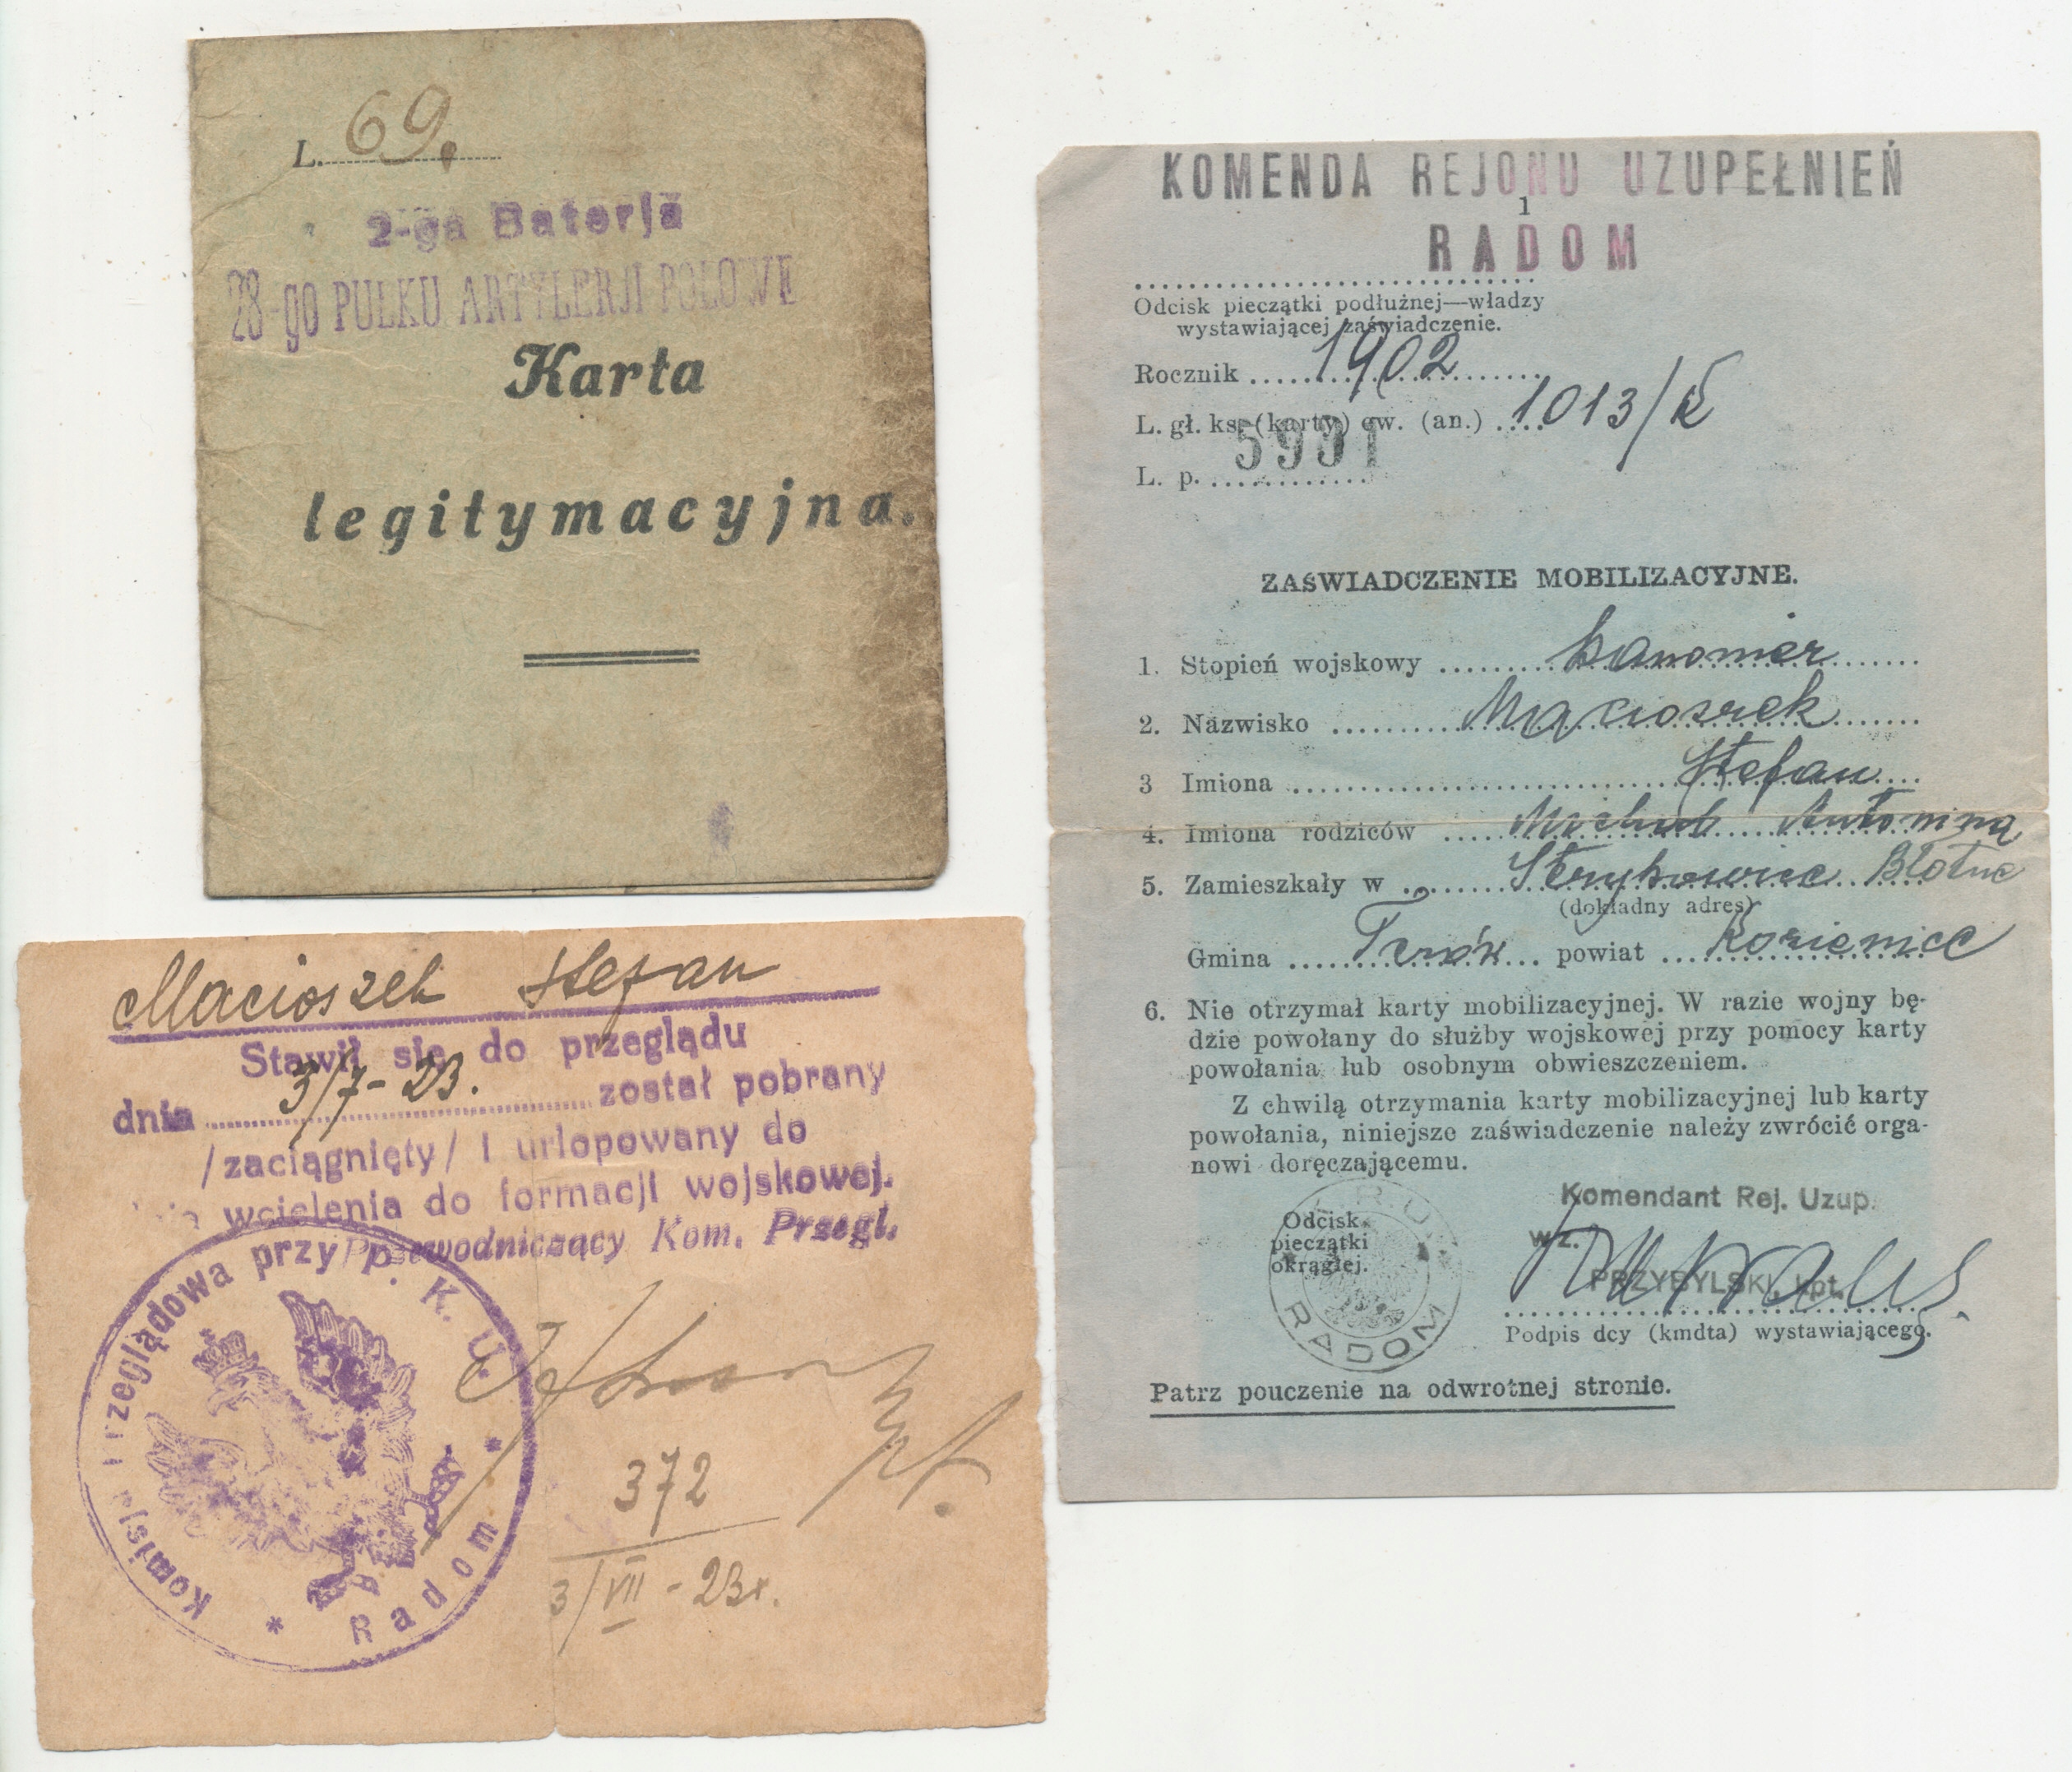 L. 69.
2-ga Baterja
28-go PUŁKU ARTYLERJI POLOWE
Karta
legitymacyjna.
Macioszek Stefan
Stawił się do przeglądu
dnia 3/7-23. został pobrany
/zaciągnięty/ i urlopowany do
wcielenia do formacji wojskowej.
Przewodniczący Kom. Przegl.
Komisja Przeglądowa przy P. K. U.
* Radom *
372
3/VII-23r.
KOMENDA REJONU UZUPEŁNIEŃ
1
RADOM
Odcisk pieczątki podłużnej—władzy
wystawiającej zaświadczenie.
Rocznik 1902
L. gł. ks. (karty) ew. (an.) 1013/
L. p. 5931
ZAŚWIADCZENIE MOBILIZACYJNE.
1. Stopień wojskowy kanonier
2. Nazwisko Macioszek
3 Imiona Stefan
4. Imiona rodziców Antonina
5. Zamieszkały w Strykowice Błotne
(dokładny adres)
Gmina powiat Kozienice
6. Nie otrzymał karty mobilizacyjnej. W razie wojny bę-
dzie powołany do służby wojskowej przy pomocy karty
powołania lub osobnym obwieszczeniem.
Z chwilą otrzymania karty mobilizacyjnej lub karty
powołania, niniejsze zaświadczenie należy zwrócić orga-
nowi doręczającemu.
Komendant Rej. Uzup.
wz.
PRZYBYLSKI, kpt.
Odcisk
pieczątki
okrągłej.
RADOM
Podpis dcy (kmdta) wystawiającego.
Patrz pouczenie na odwrotnej stronie.